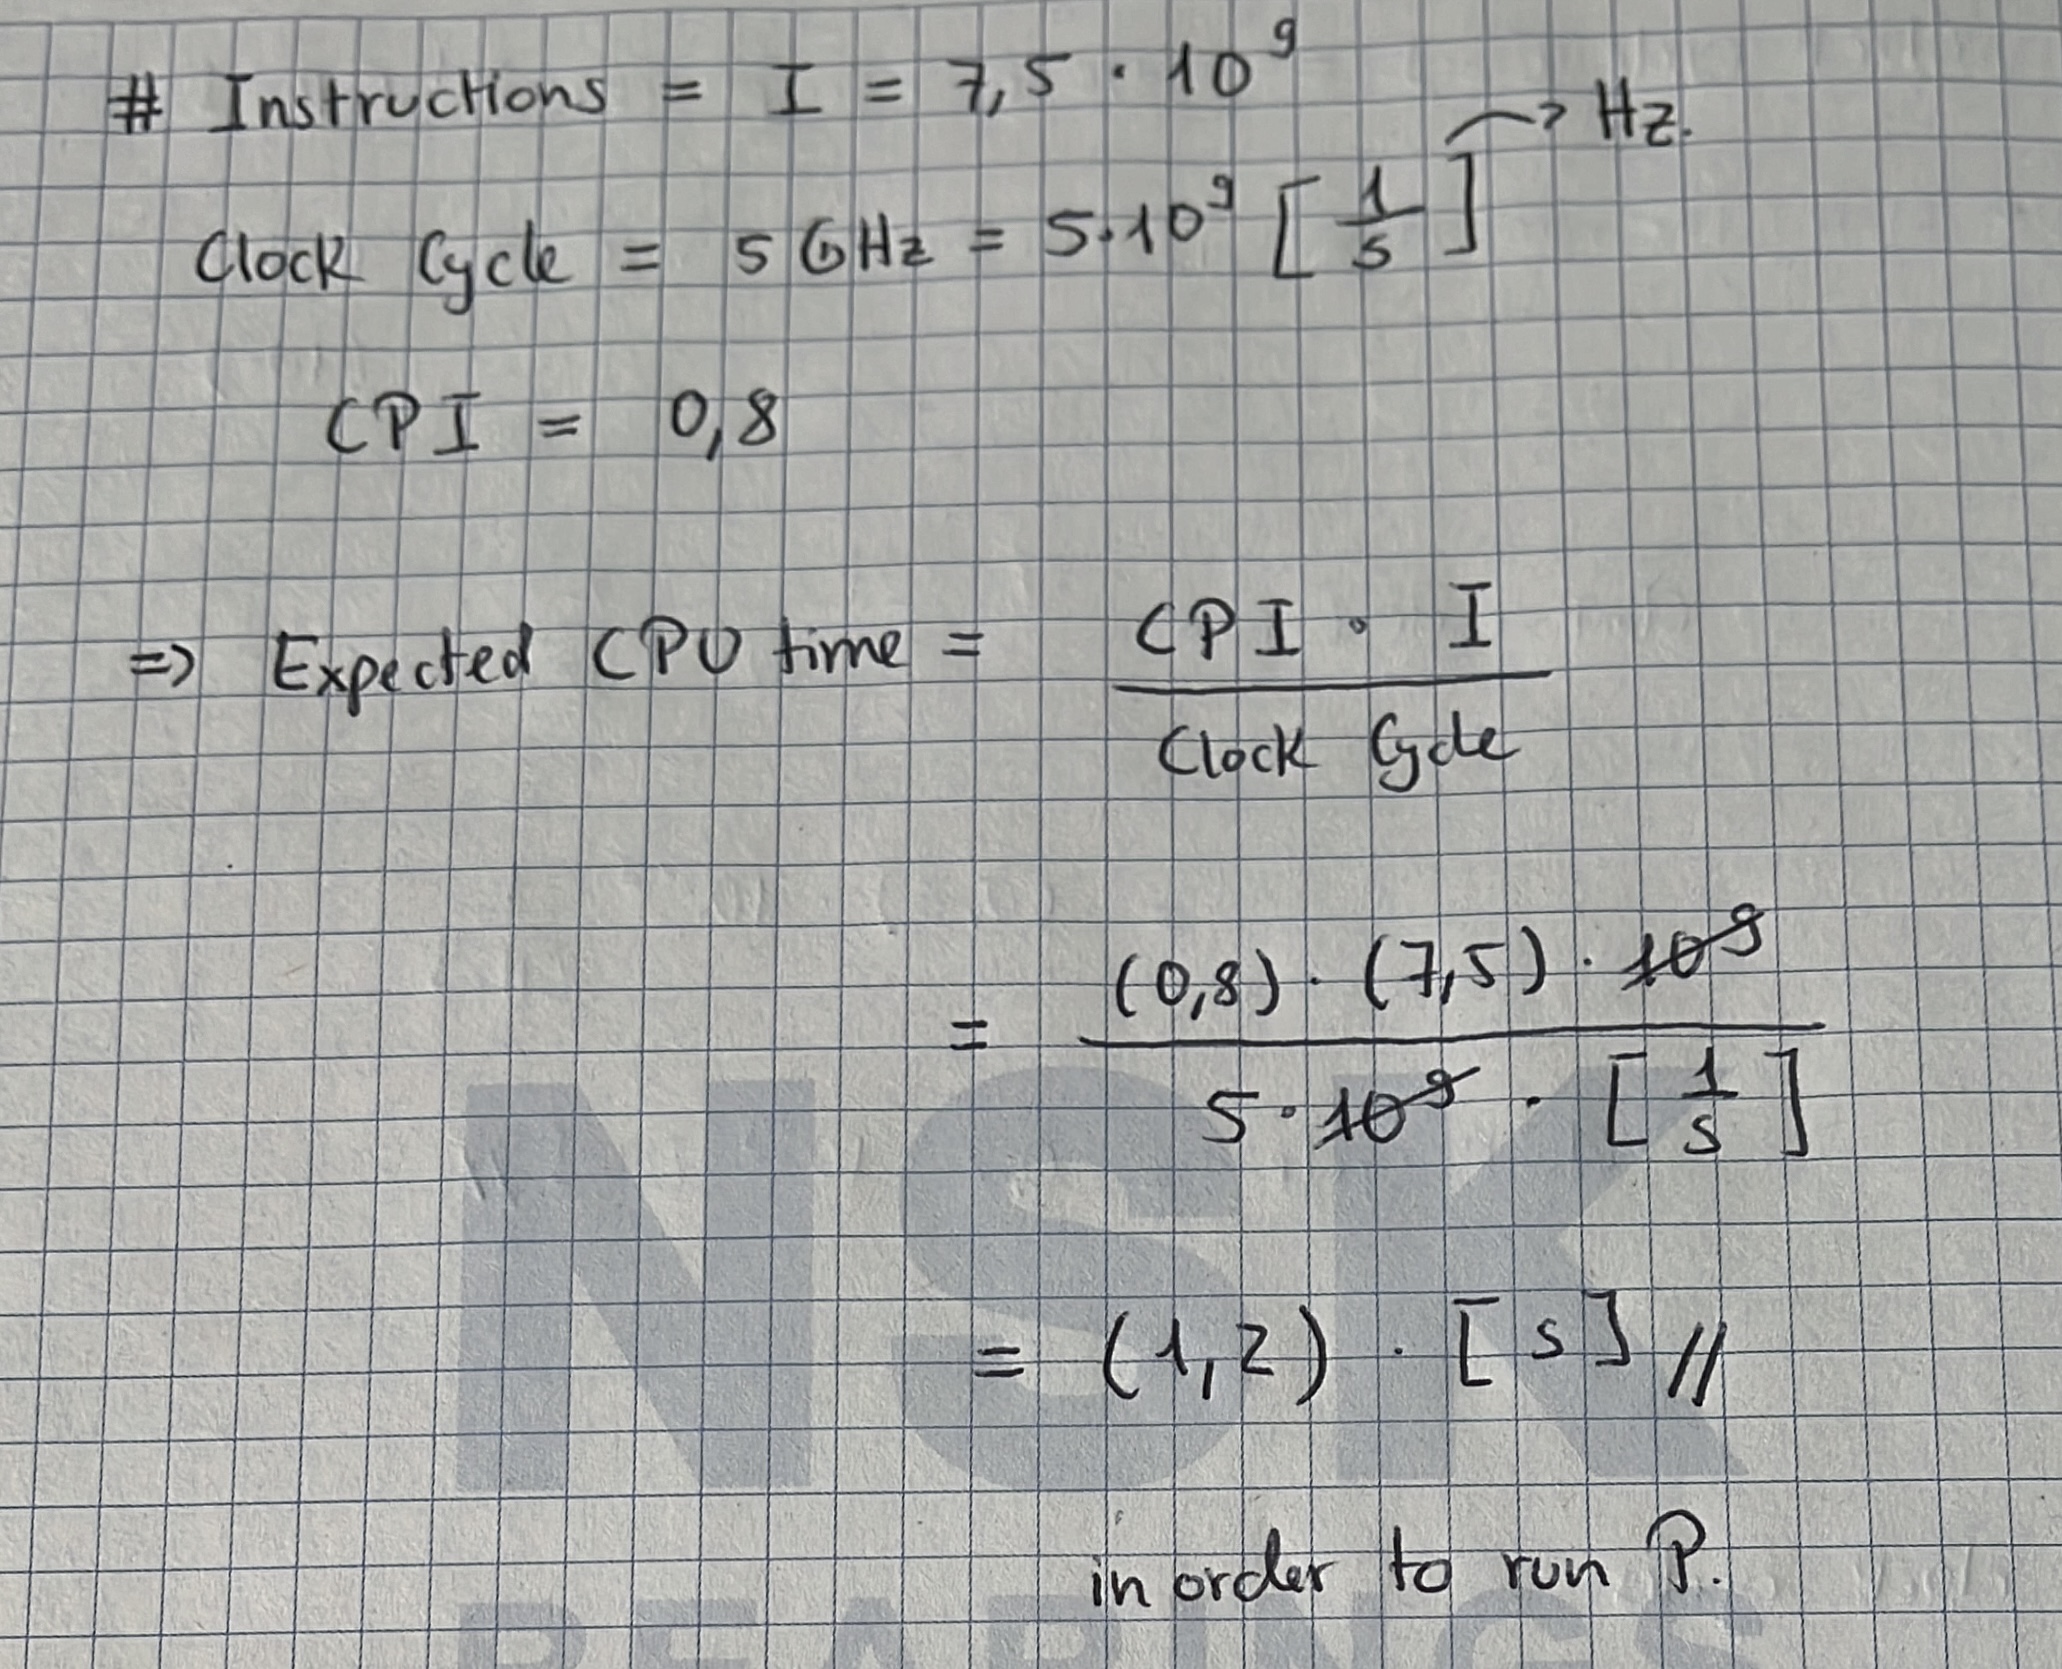 # Instructions = I = 7,5 · 10⁹
Clock Cycle = 5 GHz = 5·10⁹ [1/s] → Hz.
CPI = 0,8
=> Expected CPU time = CPI · I / Clock Cycle
= (0,8) · (7,5) · 10⁹ / 5 · 10⁹ · [1/s]
= (1,2) · [s] //
in order to run P.
NSK
BEARINGS